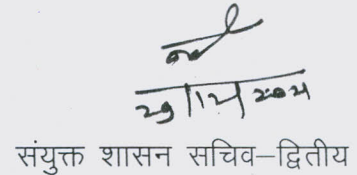 29/12/2021
संयुक्त शासन सचिव–द्वितीय